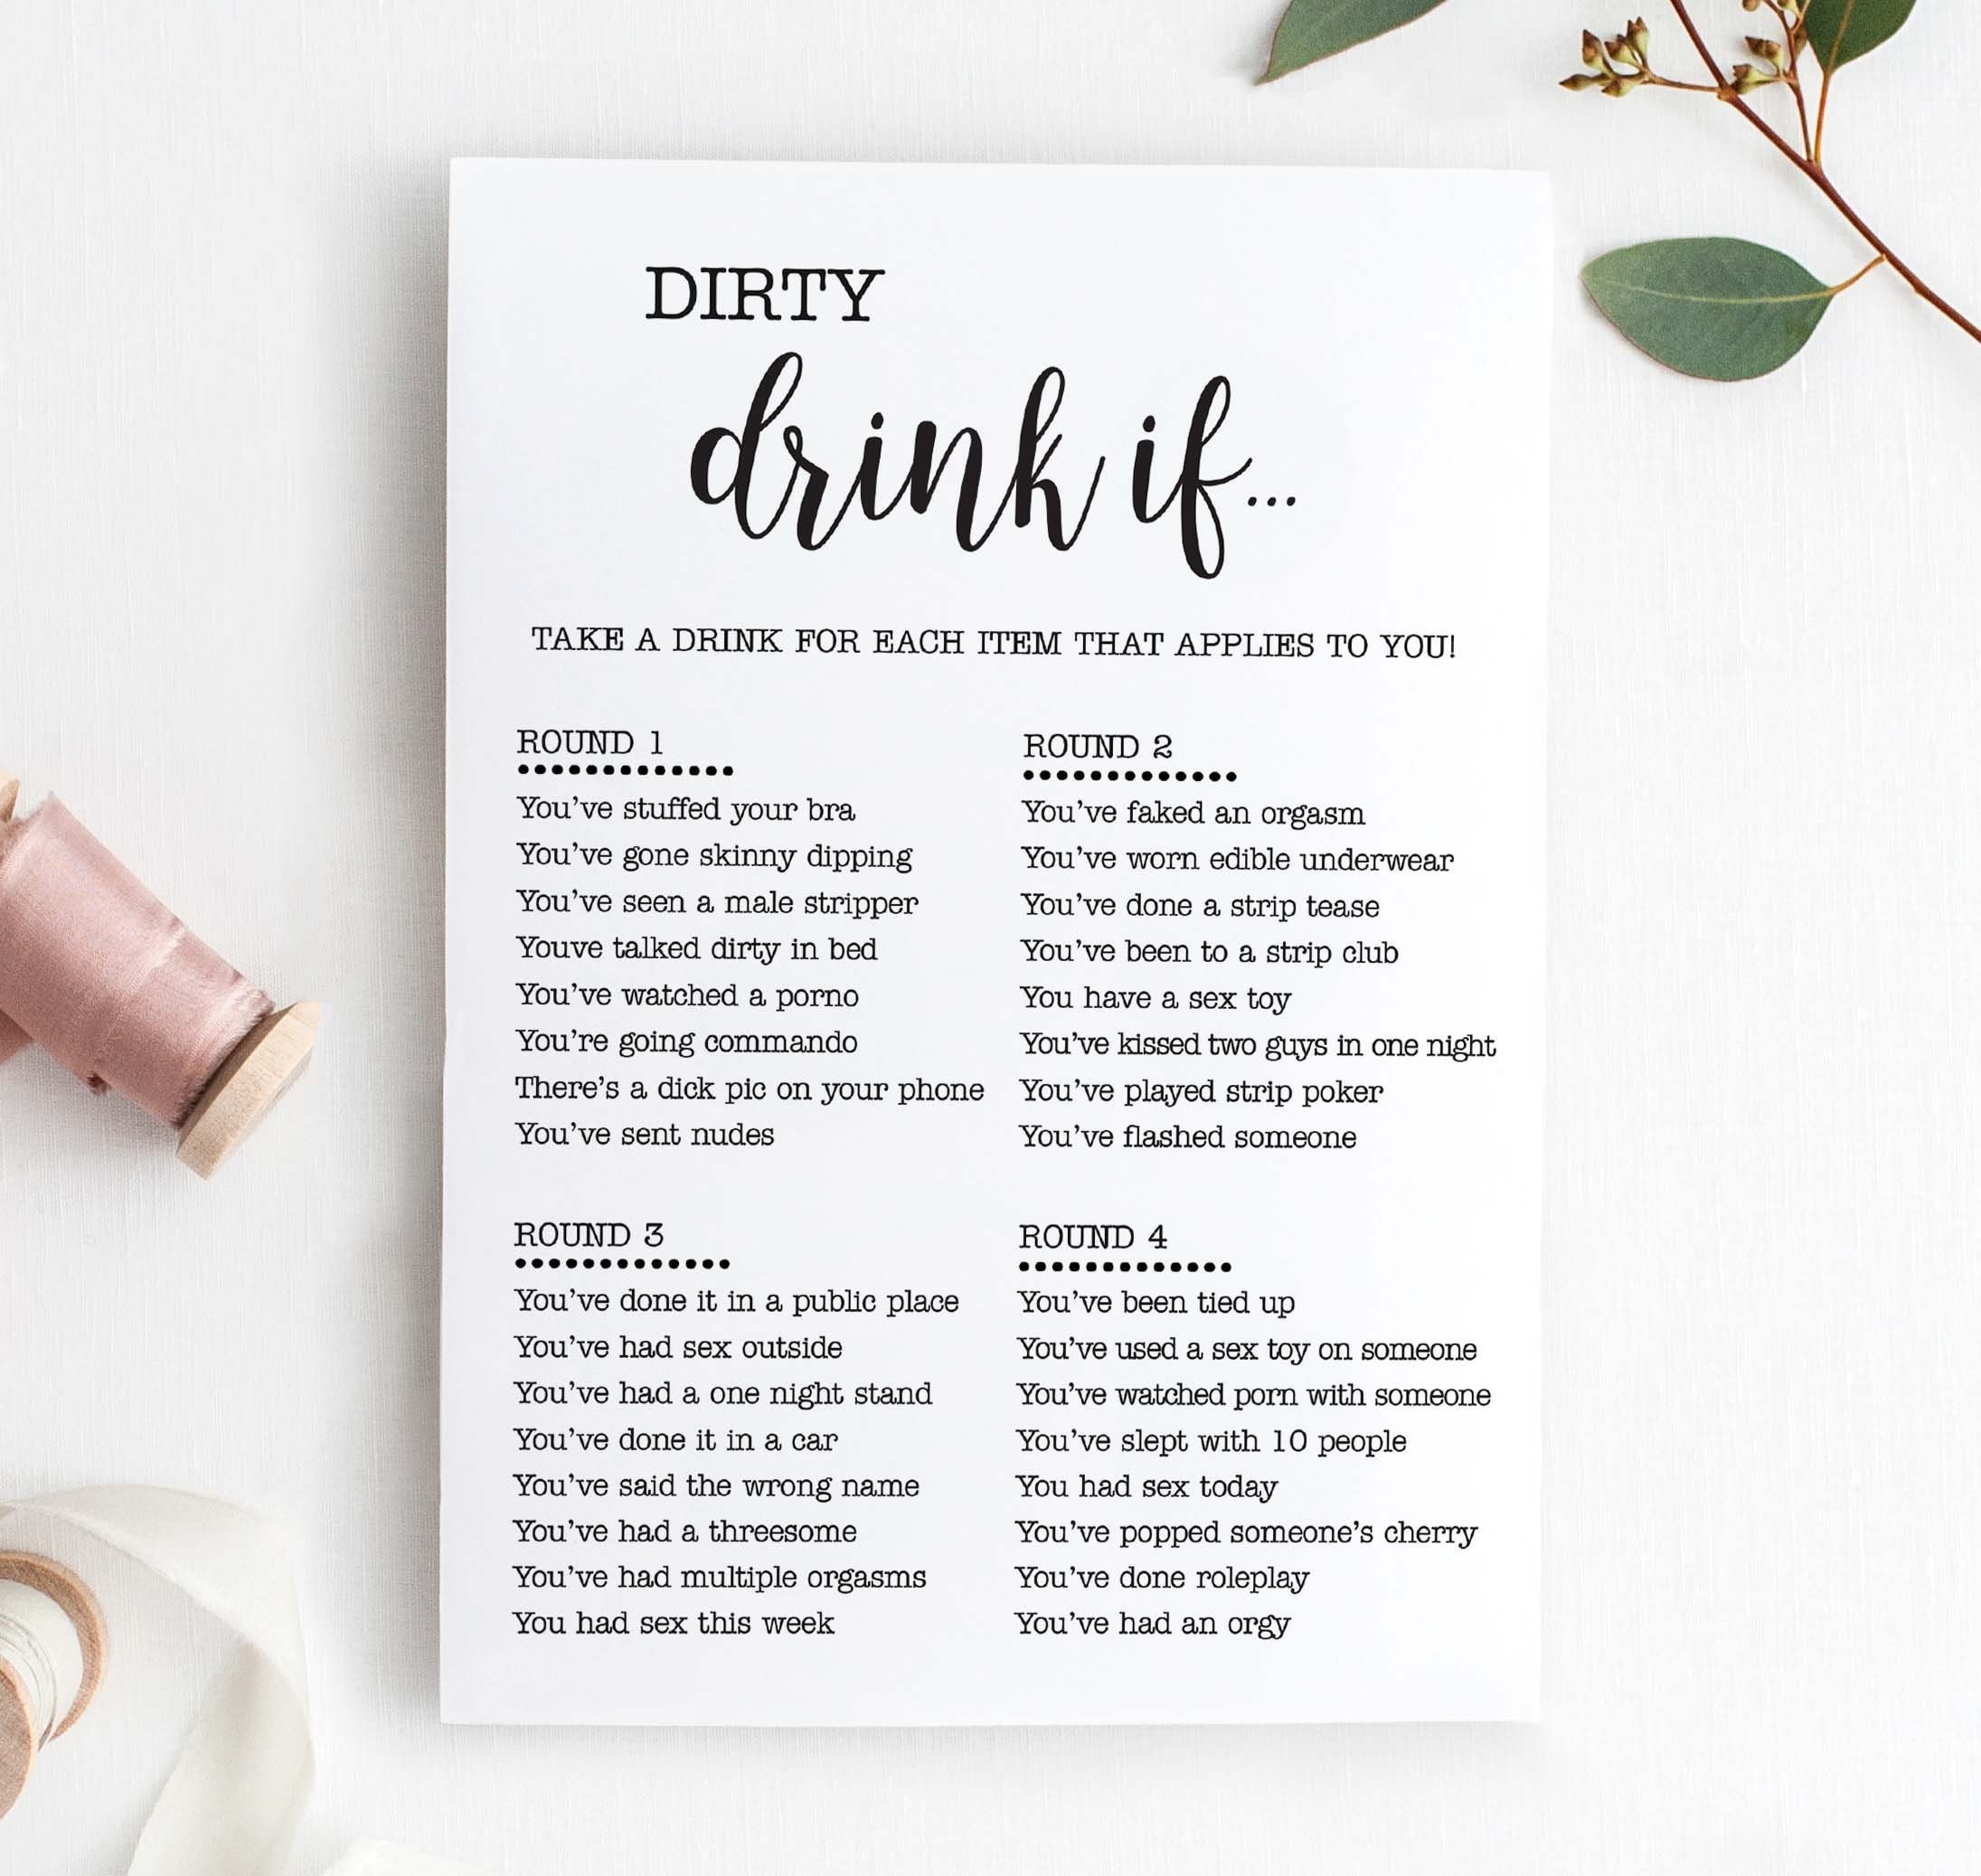 DIRTY
drink if...
TAKE A DRINK FOR EACH ITEM THAT APPLIES TO YOU!
ROUND 1
You've stuffed your bra
You've gone skinny dipping
You've seen a male stripper
Youve talked dirty in bed
You've watched a porno
You're going commando
There's a dick pic on your phone
You've sent nudes
ROUND 2
You've faked an orgasm
You've worn edible underwear
You've done a strip tease
You've been to a strip club
You have a sex toy
You've kissed two guys in one night
You've played strip poker
You've flashed someone
ROUND 3
You've done it in a public place
You've had sex outside
You've had a one night stand
You've done it in a car
You've said the wrong name
You've had a threesome
You've had multiple orgasms
You had sex this week
ROUND 4
You've been tied up
You've used a sex toy on someone
You've watched porn with someone
You've slept with 10 people
You had sex today
You've popped someone's cherry
You've done roleplay
You've had an orgy